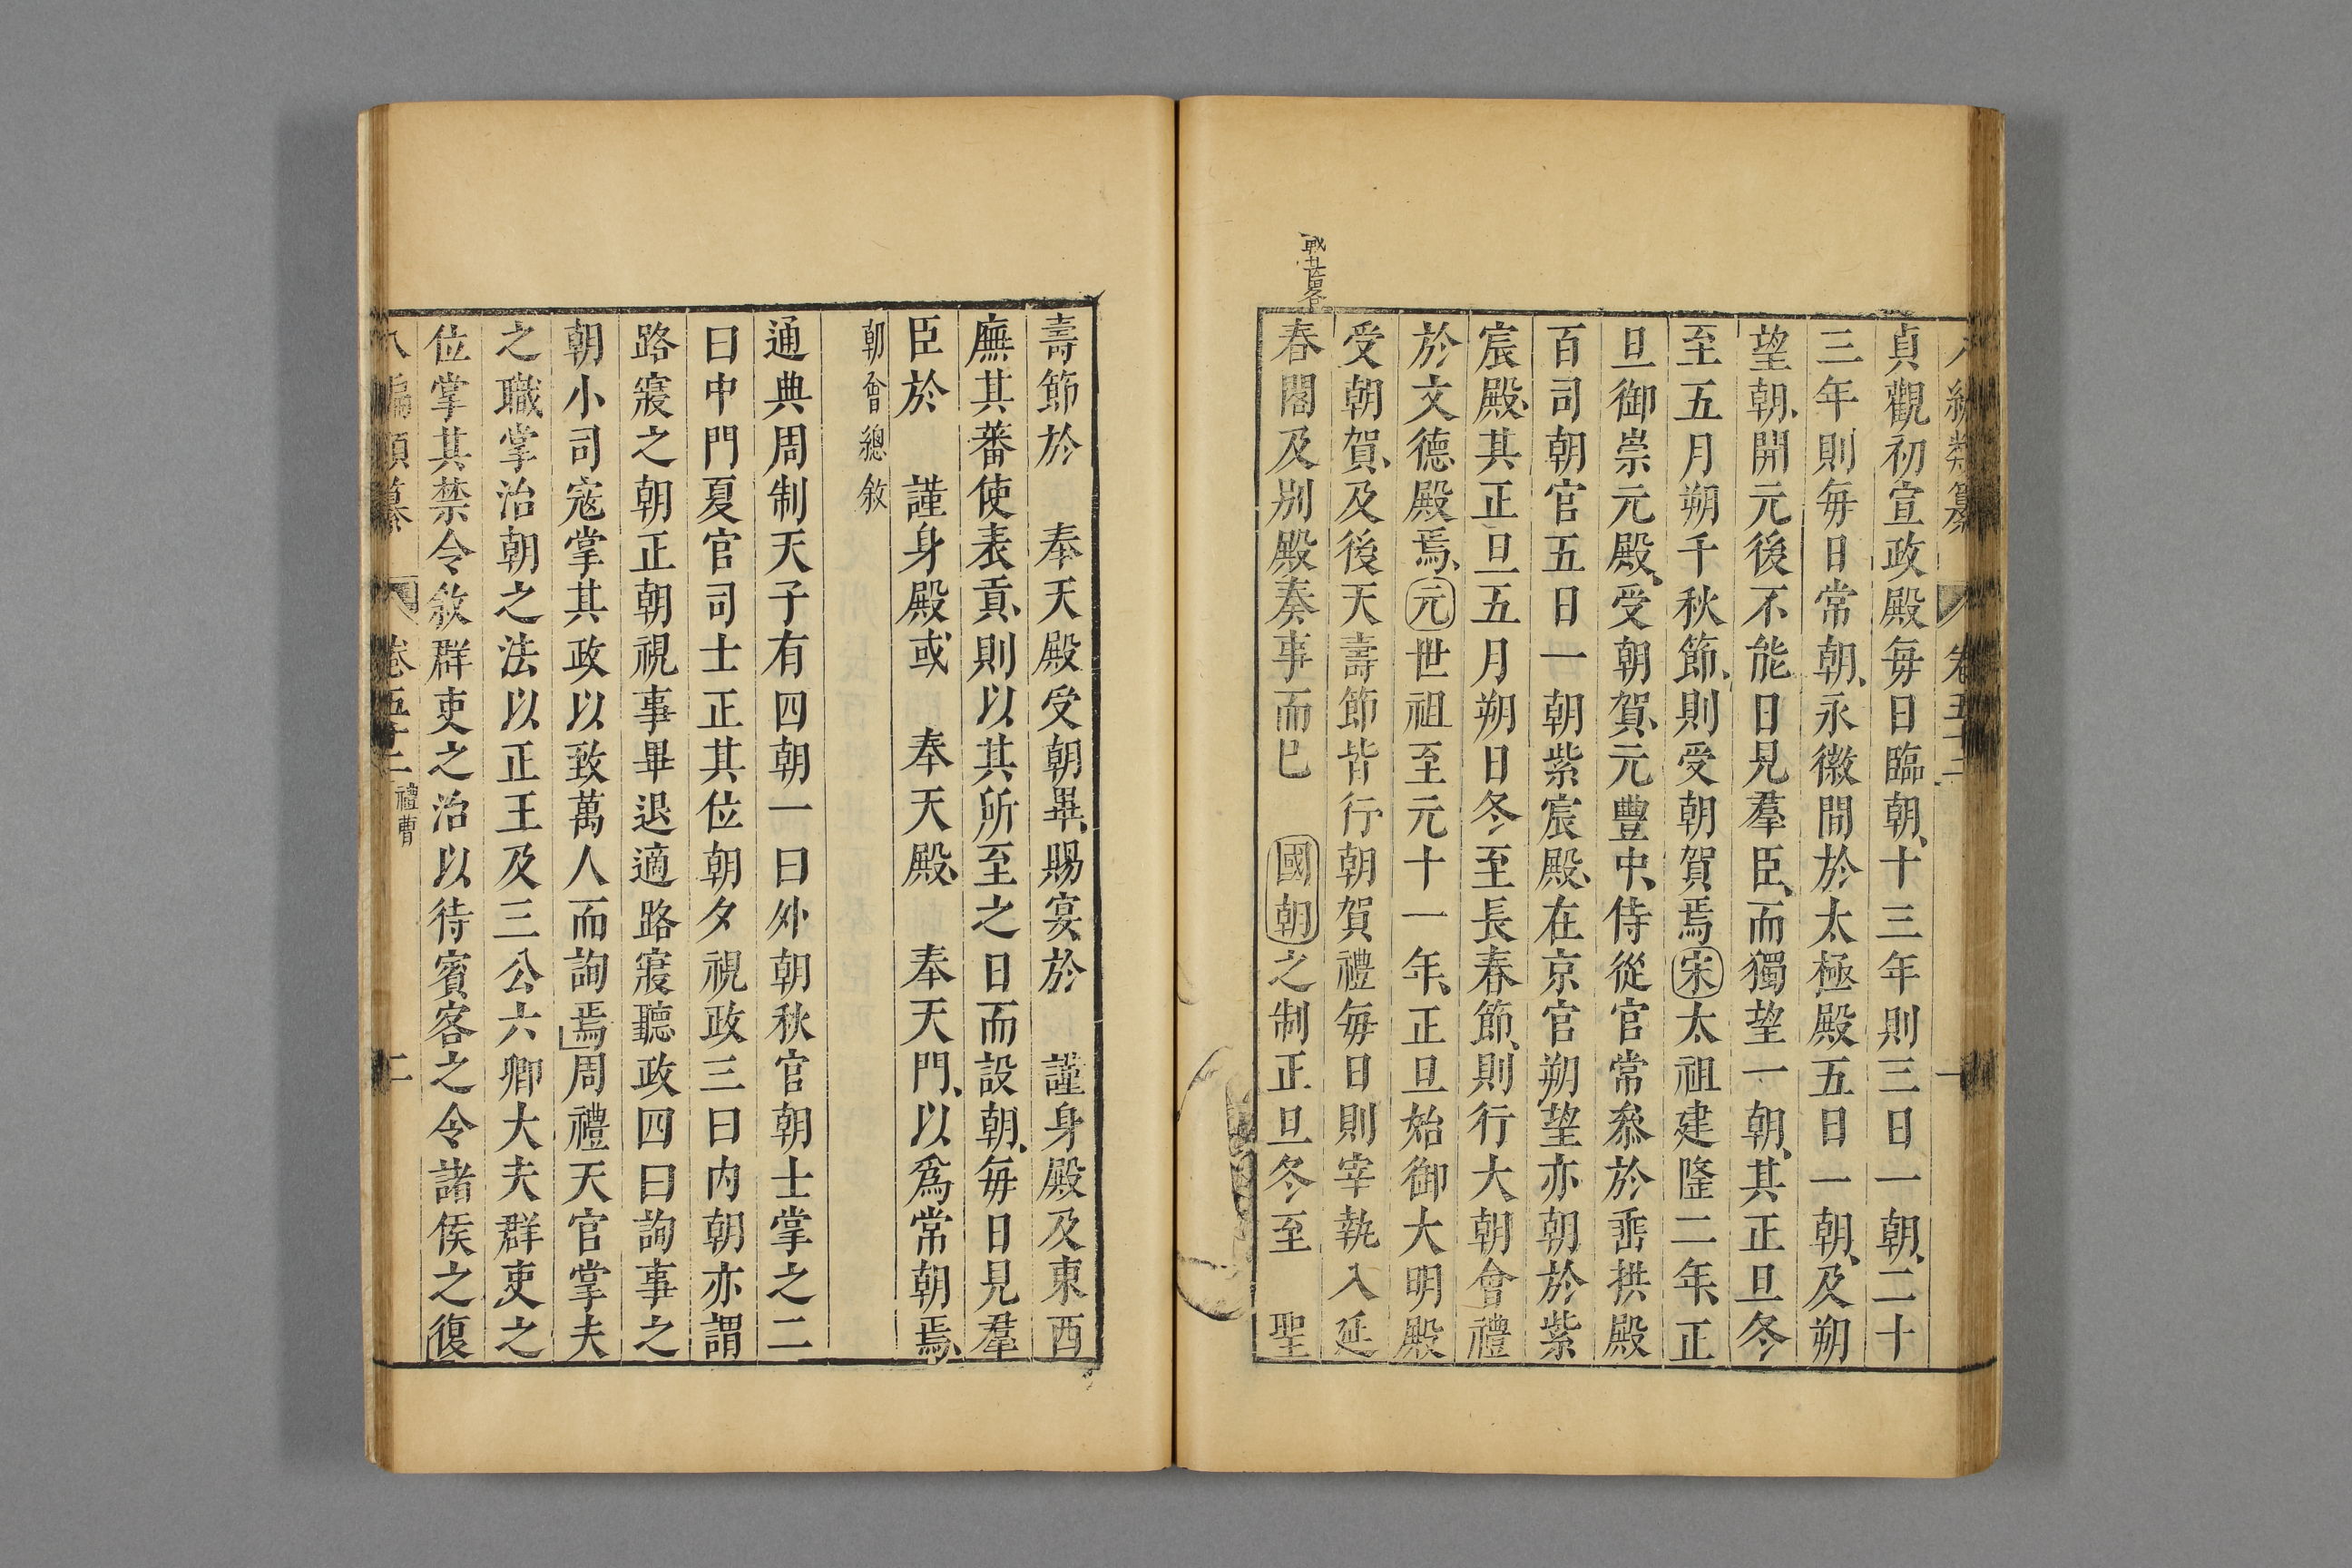 八編類纂 卷五十二 一
貞觀初宣政殿每日臨朝、十三年則三日一朝、二十
三年則每日常朝、永徽間於太極殿五日一朝、及朔
望朝、開元後不能日見羣臣、而獨望一朝、其正旦冬
至五月朔千秋節、則受朝賀焉宋太祖建隆二年、正
旦御崇元殿、受朝賀、元豐中、侍從官常叅於垂拱殿
百司朝官五日一朝紫宸殿、在京官朔望亦朝於紫
宸殿、其正旦五月朔日冬至長春節、則行大朝會禮
於文德殿焉、元世祖至元十一年、正旦始御大明殿
受朝賀、及後天壽節皆行朝賀禮每日則宰執入延
春閣及别殿奏事而已 國朝之制正旦冬至 聖
壽節於 奉天殿受朝畢、賜宴於 謹身殿及東西
廡其蕃使表貢、則以其所至之日而設朝、每日見羣
臣於 謹身殿或 奉天殿、 奉天門、以爲常朝焉、
朝會總敘
通典周制天子有四朝一曰外朝秋官朝士掌之二
曰中門夏官司士正其位朝夕視政三曰内朝亦謂
路寢之朝正朝視事畢退適路寢聽政四曰詢事之
朝小司寇掌其政以致萬人而詢焉周禮天官掌夫
之職掌治朝之法以正王及三公六卿大夫群吏之
位掌其禁令敘群吏之治以待賓客之令諸侯之復
八編類纂 卷五十二 禮曹 二